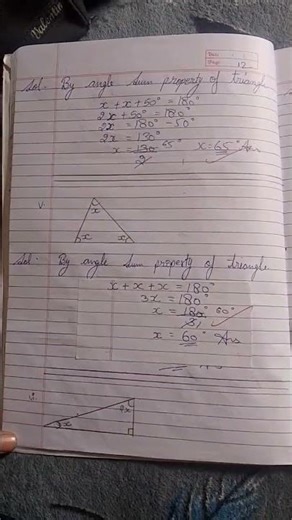 Valentin
Date
Page 12
Sol:- By angle sum property of triangle
x + x + 50° = 180°
2x + 50° = 180°
2x = 180° - 50°
2x = 130°
x = 130 65° x = 65° Ans
2
v.
x
x x
Sol:- By angle sum property of triangle
x + x + x = 180°
3x = 180°
x = 180 60°
3
x = 60° Ans
vi
2x
x